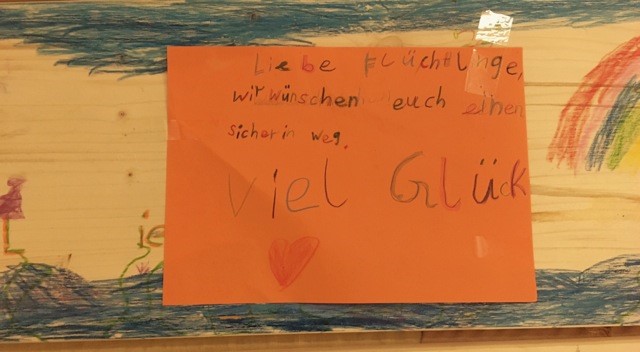 Liebe Flüchtlinge,
wir wünschen euch einen
sicherin weg.
Viel Glück